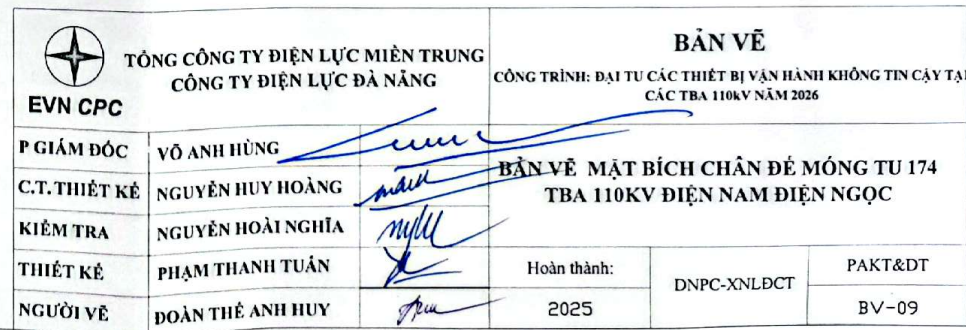 EVN CPC
TỔNG CÔNG TY ĐIỆN LỰC MIỀN TRUNG
CÔNG TY ĐIỆN LỰC ĐÀ NẴNG
BẢN VẼ
CÔNG TRÌNH: ĐẠI TU CÁC THIẾT BỊ VẬN HÀNH KHÔNG TIN CẬY TẠI
CÁC TBA 110kV NĂM 2026
P GIÁM ĐỐC
VÕ ANH HÙNG
C.T. THIẾT KẾ
NGUYỄN HUY HOÀNG
KIỂM TRA
NGUYỄN HOÀI NGHĨA
THIẾT KẾ
PHẠM THANH TUẤN
NGƯỜI VẼ
ĐOÀN THẾ ANH HUY
BẢN VẼ MẶT BÍCH CHÂN ĐẾ MÓNG TU 174
TBA 110KV ĐIỆN NAM ĐIỆN NGỌC
Hoàn thành:
2025
DNPC-XNLĐCT
PAKT&DT
BV-09